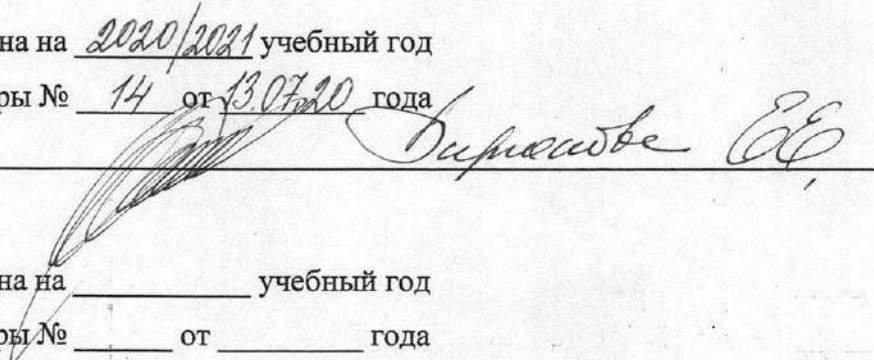 на на 2020/2021 учебный год
ры № 14 от 13.07.20 года
ЕЕ
на на учебный год
ры № от года